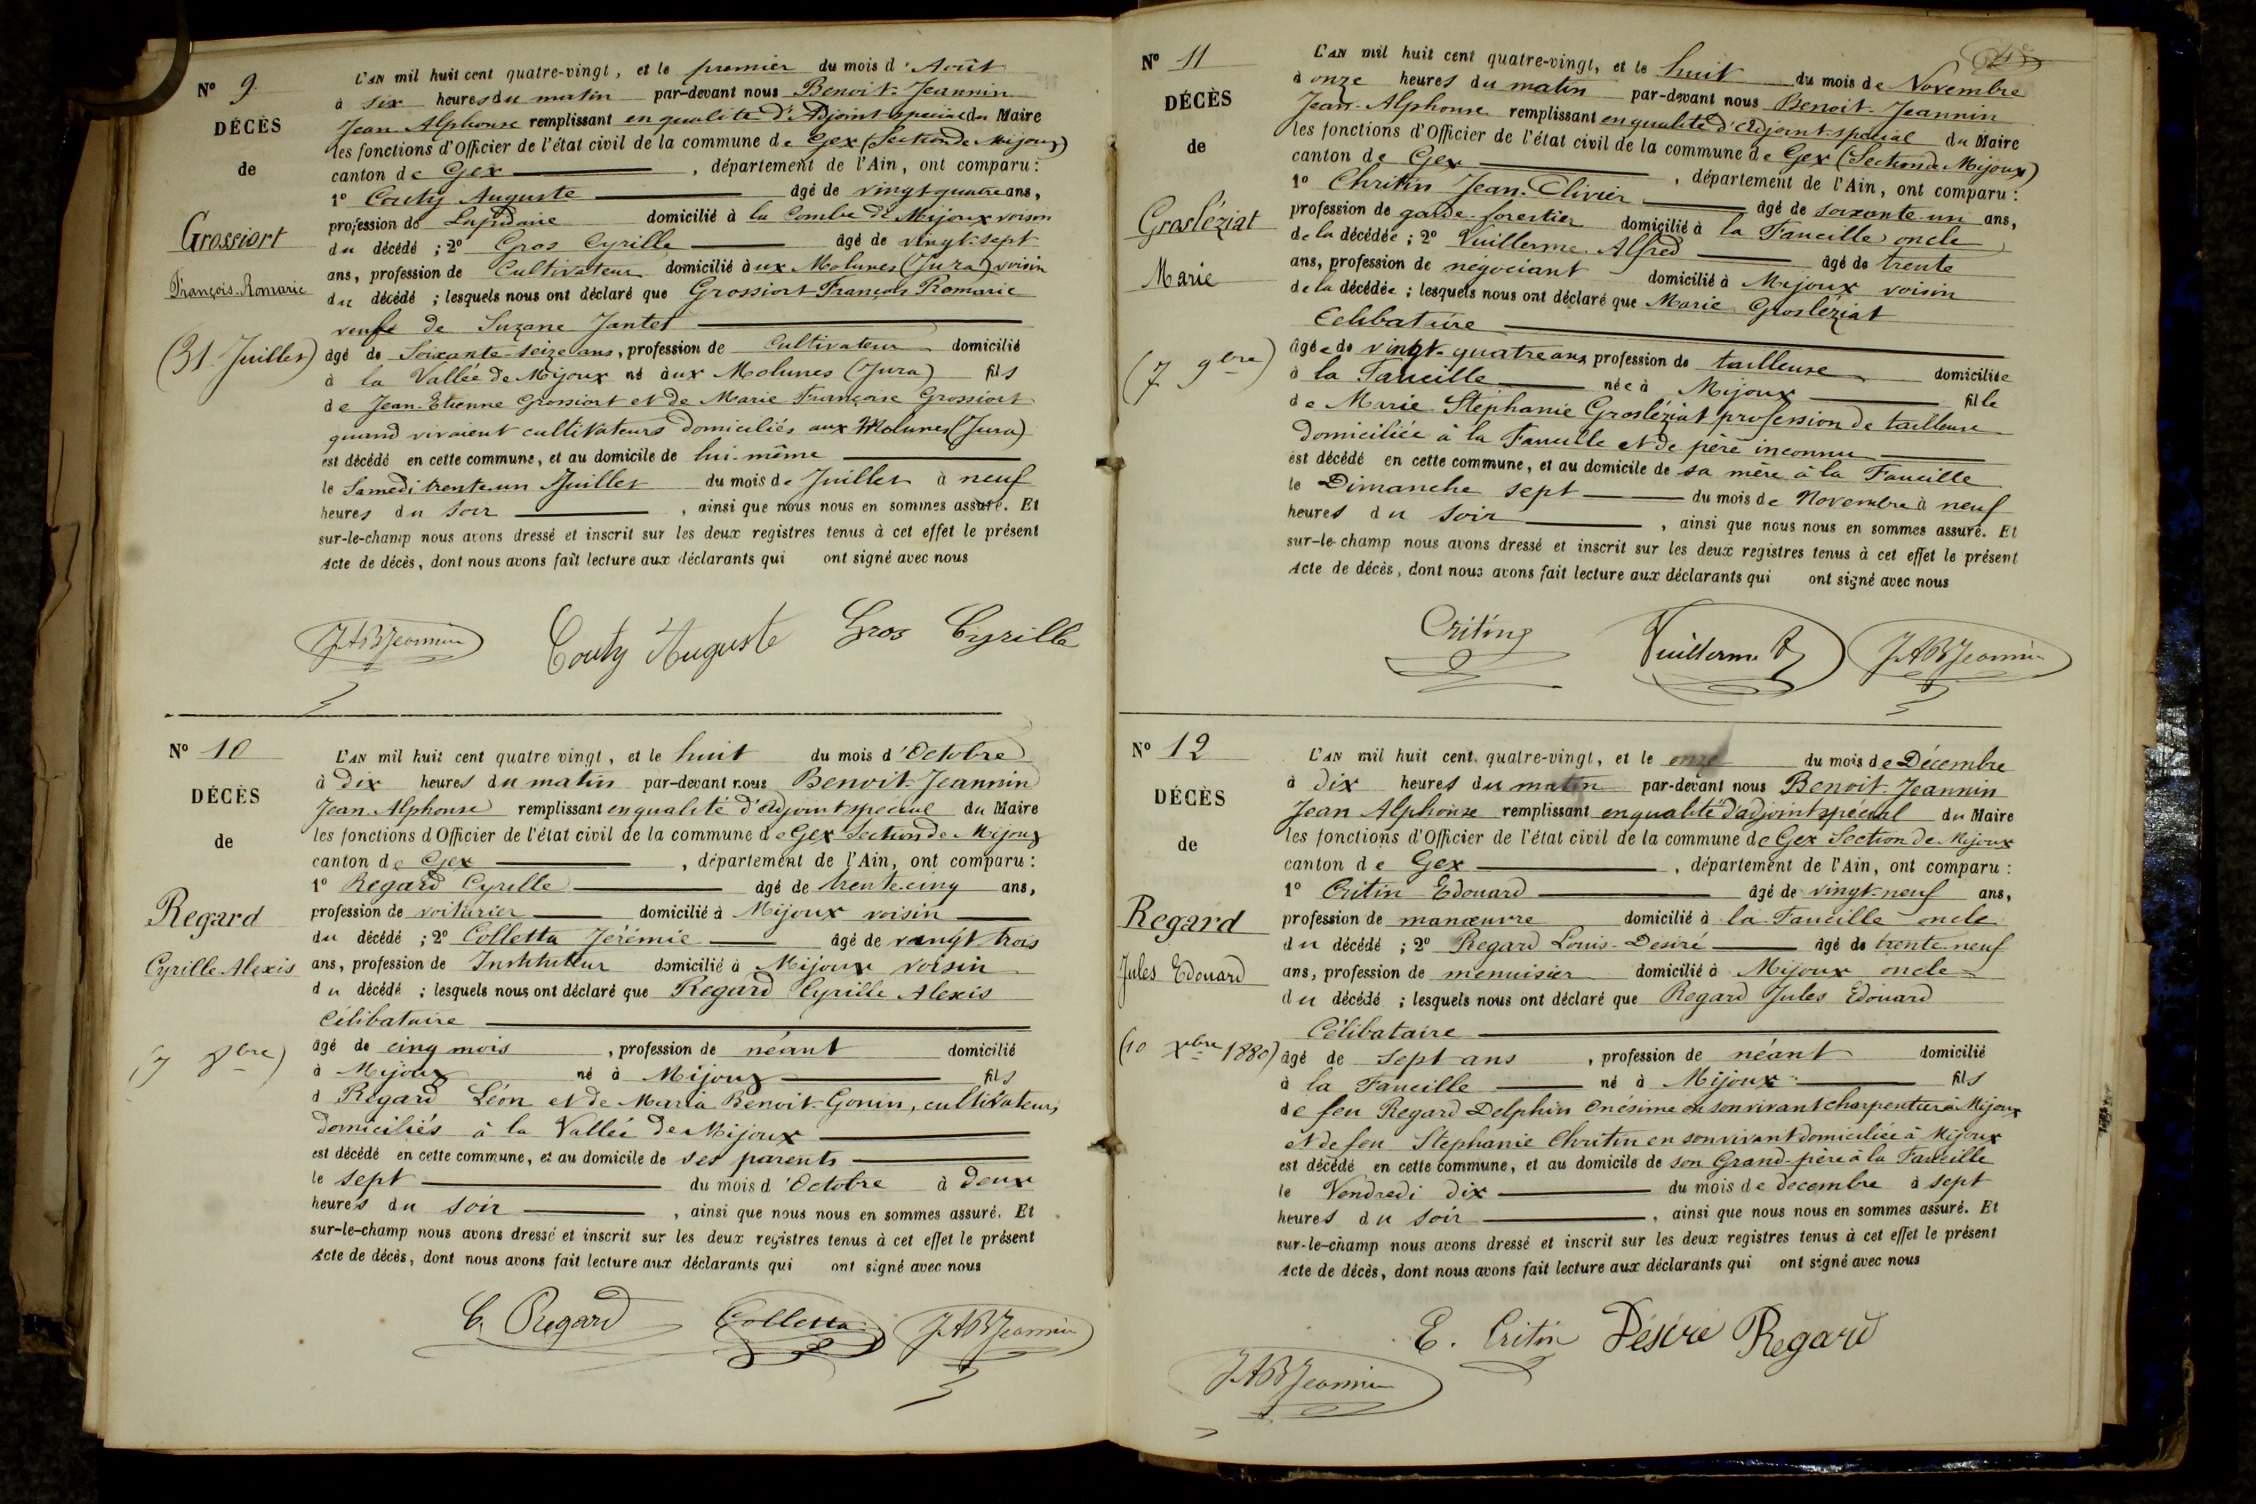 Nº 9
DÉCÈS
de
Grossiort
François-Romarie
(31 Juillet)
L'AN mil huit cent quatre-vingt, et le premier du mois d'Août
à six heures du matin par-devant nous Benoit-Jeannin
Jean Alphonse remplissant en qualité d'Adjoint spécial du Maire
les fonctions d'Officier de l'état civil de la commune de Gex (Section de Mijoux)
canton de Gex , département de l'Ain, ont comparu :
1º Couty Auguste âgé de vingt quatre ans,
profession de Lapidaire domicilié à la Combe de Mijoux voisin
du décédé ; 2º Gros Cyrille âgé de vingt-sept
ans, profession de Cultivateur domicilié aux Molunes (Jura) voisin
du décédé ; lesquels nous ont déclaré que Grossiort François Romarie
veuf de Suzane Jantet
âgé de Soixante-seize ans, profession de Cultivateur domicilié
à la Vallée de Mijoux né aux Molunes (Jura) fils
de Jean-Etienne Grossiort et de Marie Françoise Grossiort
quand vivaient cultivateurs domiciliés aux Molunes (Jura)
est décédé en cette commune, et au domicile de lui-même
le Samedi trente-un Juillet du mois de Juillet à neuf
heures du soir , ainsi que nous nous en sommes assuré. Et
sur-le-champ nous avons dressé et inscrit sur les deux registres tenus à cet effet le présent
Acte de décès, dont nous avons fait lecture aux déclarants qui ont signé avec nous
JABJeannin Couty Auguste Gros Cyrille
Nº 10
DÉCÈS
de
Regard
Cyrille Alexis
(7 8bre)
L'AN mil huit cent quatre vingt, et le huit du mois d'Octobre
à dix heures du matin par-devant nous Benoit-Jeannin
Jean Alphonse remplissant en qualité d'adjoint spécial du Maire
les fonctions d'Officier de l'état civil de la commune de Gex Section de Mijoux
canton de Gex , département de l'Ain, ont comparu :
1º Regard Cyrille âgé de trente-cinq ans,
profession de voiturier domicilié à Mijoux voisin
du décédé ; 2º Colletta Jérémie âgé de vingt trois
ans, profession de Instituteur domicilié à Mijoux voisin
du décédé ; lesquels nous ont déclaré que Regard Cyrille Alexis
Célibataire
âgé de cinq mois , profession de néant domicilié
à Mijoux né à Mijoux fils
d Regard Léon et de Maria Benoit-Gonin, cultivateurs
domiciliés à la Vallée de Mijoux
est décédé en cette commune, et au domicile de ses parents
le sept du mois d'Octobre à deux
heures du soir , ainsi que nous nous en sommes assuré. Et
sur-le-champ nous avons dressé et inscrit sur les deux registres tenus à cet effet le présent
Acte de décès, dont nous avons fait lecture aux déclarants qui ont signé avec nous
C. Regard Colletta JABJeannin
Nº 11
DÉCÈS
de
Grosléziat
Marie
(7 9bre)
L'AN mil huit cent quatre-vingt, et le huit du mois de Novembre
à onze heures du matin par-devant nous Benoit-Jeannin
Jean-Alphonse remplissant en qualité d'adjoint-spécial du Maire
les fonctions d'Officier de l'état civil de la commune de Gex (Section de Mijoux)
canton de Gex , département de l'Ain, ont comparu :
1º Chritin Jean-Olivier âgé de soixante-un ans,
profession de garde-forestier domicilié à la Faucille oncle
de la décédée ; 2º Vuillerme Alfred âgé de trente
ans, profession de négociant domicilié à Mijoux voisin
de la décédée ; lesquels nous ont déclaré que Marie Grosléziat
Célibataire
âgée de vingt-quatre ans, profession de tailleuse domiciliée
à la Faucille née à Mijoux fille
de Marie Stéphanie Grosléziat profession de tailleuse
domiciliée à la Faucille et de père inconnu
est décédé en cette commune, et au domicile de sa mère à la Faucille
le Dimanche sept du mois de Novembre à neuf
heures du soir , ainsi que nous nous en sommes assuré. Et
sur-le-champ nous avons dressé et inscrit sur les deux registres tenus à cet effet le présent
Acte de décès, dont nous avons fait lecture aux déclarants qui ont signé avec nous
Critin Vuillerme A JABJeannin
Nº 12
DÉCÈS
de
Regard
Jules Edouard
(10 Xbre 1880)
L'AN mil huit cent quatre-vingt, et le onze du mois de Décembre
à dix heures du matin par-devant nous Benoit-Jeannin
Jean Alphonse remplissant en qualité d'adjoint spécial du Maire
les fonctions d'Officier de l'état civil de la commune de Gex Section de Mijoux
canton de Gex , département de l'Ain, ont comparu :
1º Critin Edouard âgé de vingt-neuf ans,
profession de manœuvre domicilié à la Faucille oncle
du décédé ; 2º Regard Louis-Désiré âgé de trente neuf
ans, profession de menuisier domicilié à Mijoux oncle
du décédé ; lesquels nous ont déclaré que Regard Jules Edouard
Célibataire
âgé de sept ans , profession de néant domicilié
à la Faucille né à Mijoux fils
de feu Regard Delphin Onésime en son vivant charpentier à Mijoux
et de feu Stéphanie Chritin en son vivant domiciliée à Mijoux
est décédé en cette commune, et au domicile de son Grand-père à la Faucille
le Vendredi dix du mois de decembre à sept
heures du soir , ainsi que nous nous en sommes assuré. Et
sur-le-champ nous avons dressé et inscrit sur les deux registres tenus à cet effet le présent
Acte de décès, dont nous avons fait lecture aux déclarants qui ont signé avec nous
E. Critin Désiré Regard
JABJeannin